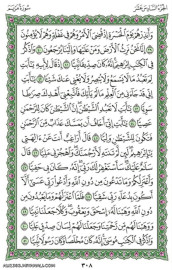 الجزء السادس عشر
سورة مريم
وَأَنذِرْهُمْ يَوْمَ ٱلْحَسْرَةِ إِذْ قُضِىَ ٱلْأَمْرُ وَهُمْ فِى غَفْلَةٍ وَهُمْ لَا يُؤْمِنُونَ
٣٩ إِنَّا نَحْنُ نَرِثُ ٱلْأَرْضَ وَمَنْ عَلَيْهَا وَإِلَيْنَا يُرْجَعُونَ ٤٠ وَٱذْكُرْ
فِى ٱلْكِتَٰبِ إِبْرَٰهِيمَ إِنَّهُۥ كَانَ صِدِّيقًا نَّبِيًّا ٤١ إِذْ قَالَ لِأَبِيهِ
يَٰٓأَبَتِ لِمَ تَعْبُدُ مَا لَا يَسْمَعُ وَلَا يُبْصِرُ وَلَا يُغْنِى عَنكَ شَيْـًٔا ٤٢
يَٰٓأَبَتِ إِنِّى قَدْ جَآءَنِى مِنَ ٱلْعِلْمِ مَا لَمْ يَأْتِكَ فَٱتَّبِعْنِىٓ أَهْدِكَ صِرَٰطًا
سَوِيًّا ٤٣ يَٰٓأَبَتِ لَا تَعْبُدِ ٱلشَّيْطَٰنَ إِنَّ ٱلشَّيْطَٰنَ كَانَ لِلرَّحْمَٰنِ
عَصِيًّا ٤٤ يَٰٓأَبَتِ إِنِّىٓ أَخَافُ أَن يَمَسَّكَ عَذَابٌ مِّنَ ٱلرَّحْمَٰنِ
فَتَكُونَ لِلشَّيْطَٰنِ وَلِيًّا ٤٥ قَالَ أَرَاغِبٌ أَنتَ عَنْ ءَالِهَتِى
يَٰٓإِبْرَٰهِيمُ لَئِن لَّمْ تَنتَهِ لَأَرْجُمَنَّكَ وَٱهْجُرْنِى مَلِيًّا ٤٦ قَالَ
سَلَٰمٌ عَلَيْكَ سَأَسْتَغْفِرُ لَكَ رَبِّىٓ إِنَّهُۥ كَانَ بِى حَفِيًّا ٤٧
وَأَعْتَزِلُكُمْ وَمَا تَدْعُونَ مِن دُونِ ٱللَّهِ وَأَدْعُوا۟ رَبِّى عَسَىٰٓ أَلَّآ
أَكُونَ بِدُعَآءِ رَبِّى شَقِيًّا ٤٨ فَلَمَّا ٱعْتَزَلَهُمْ وَمَا يَعْبُدُونَ مِن
دُونِ ٱللَّهِ وَهَبْنَا لَهُۥٓ إِسْحَٰقَ وَيَعْقُوبَ وَكُلًّا جَعَلْنَا نَبِيًّا ٤٩
وَوَهَبْنَا لَهُم مِّن رَّحْمَتِنَا وَجَعَلْنَا لَهُمْ لِسَانَ صِدْقٍ عَلِيًّا ٥٠
وَٱذْكُرْ فِى ٱلْكِتَٰبِ مُوسَىٰٓ إِنَّهُۥ كَانَ مُخْلَصًا وَكَانَ رَسُولًا نَّبِيًّا ٥١
٣٠٨